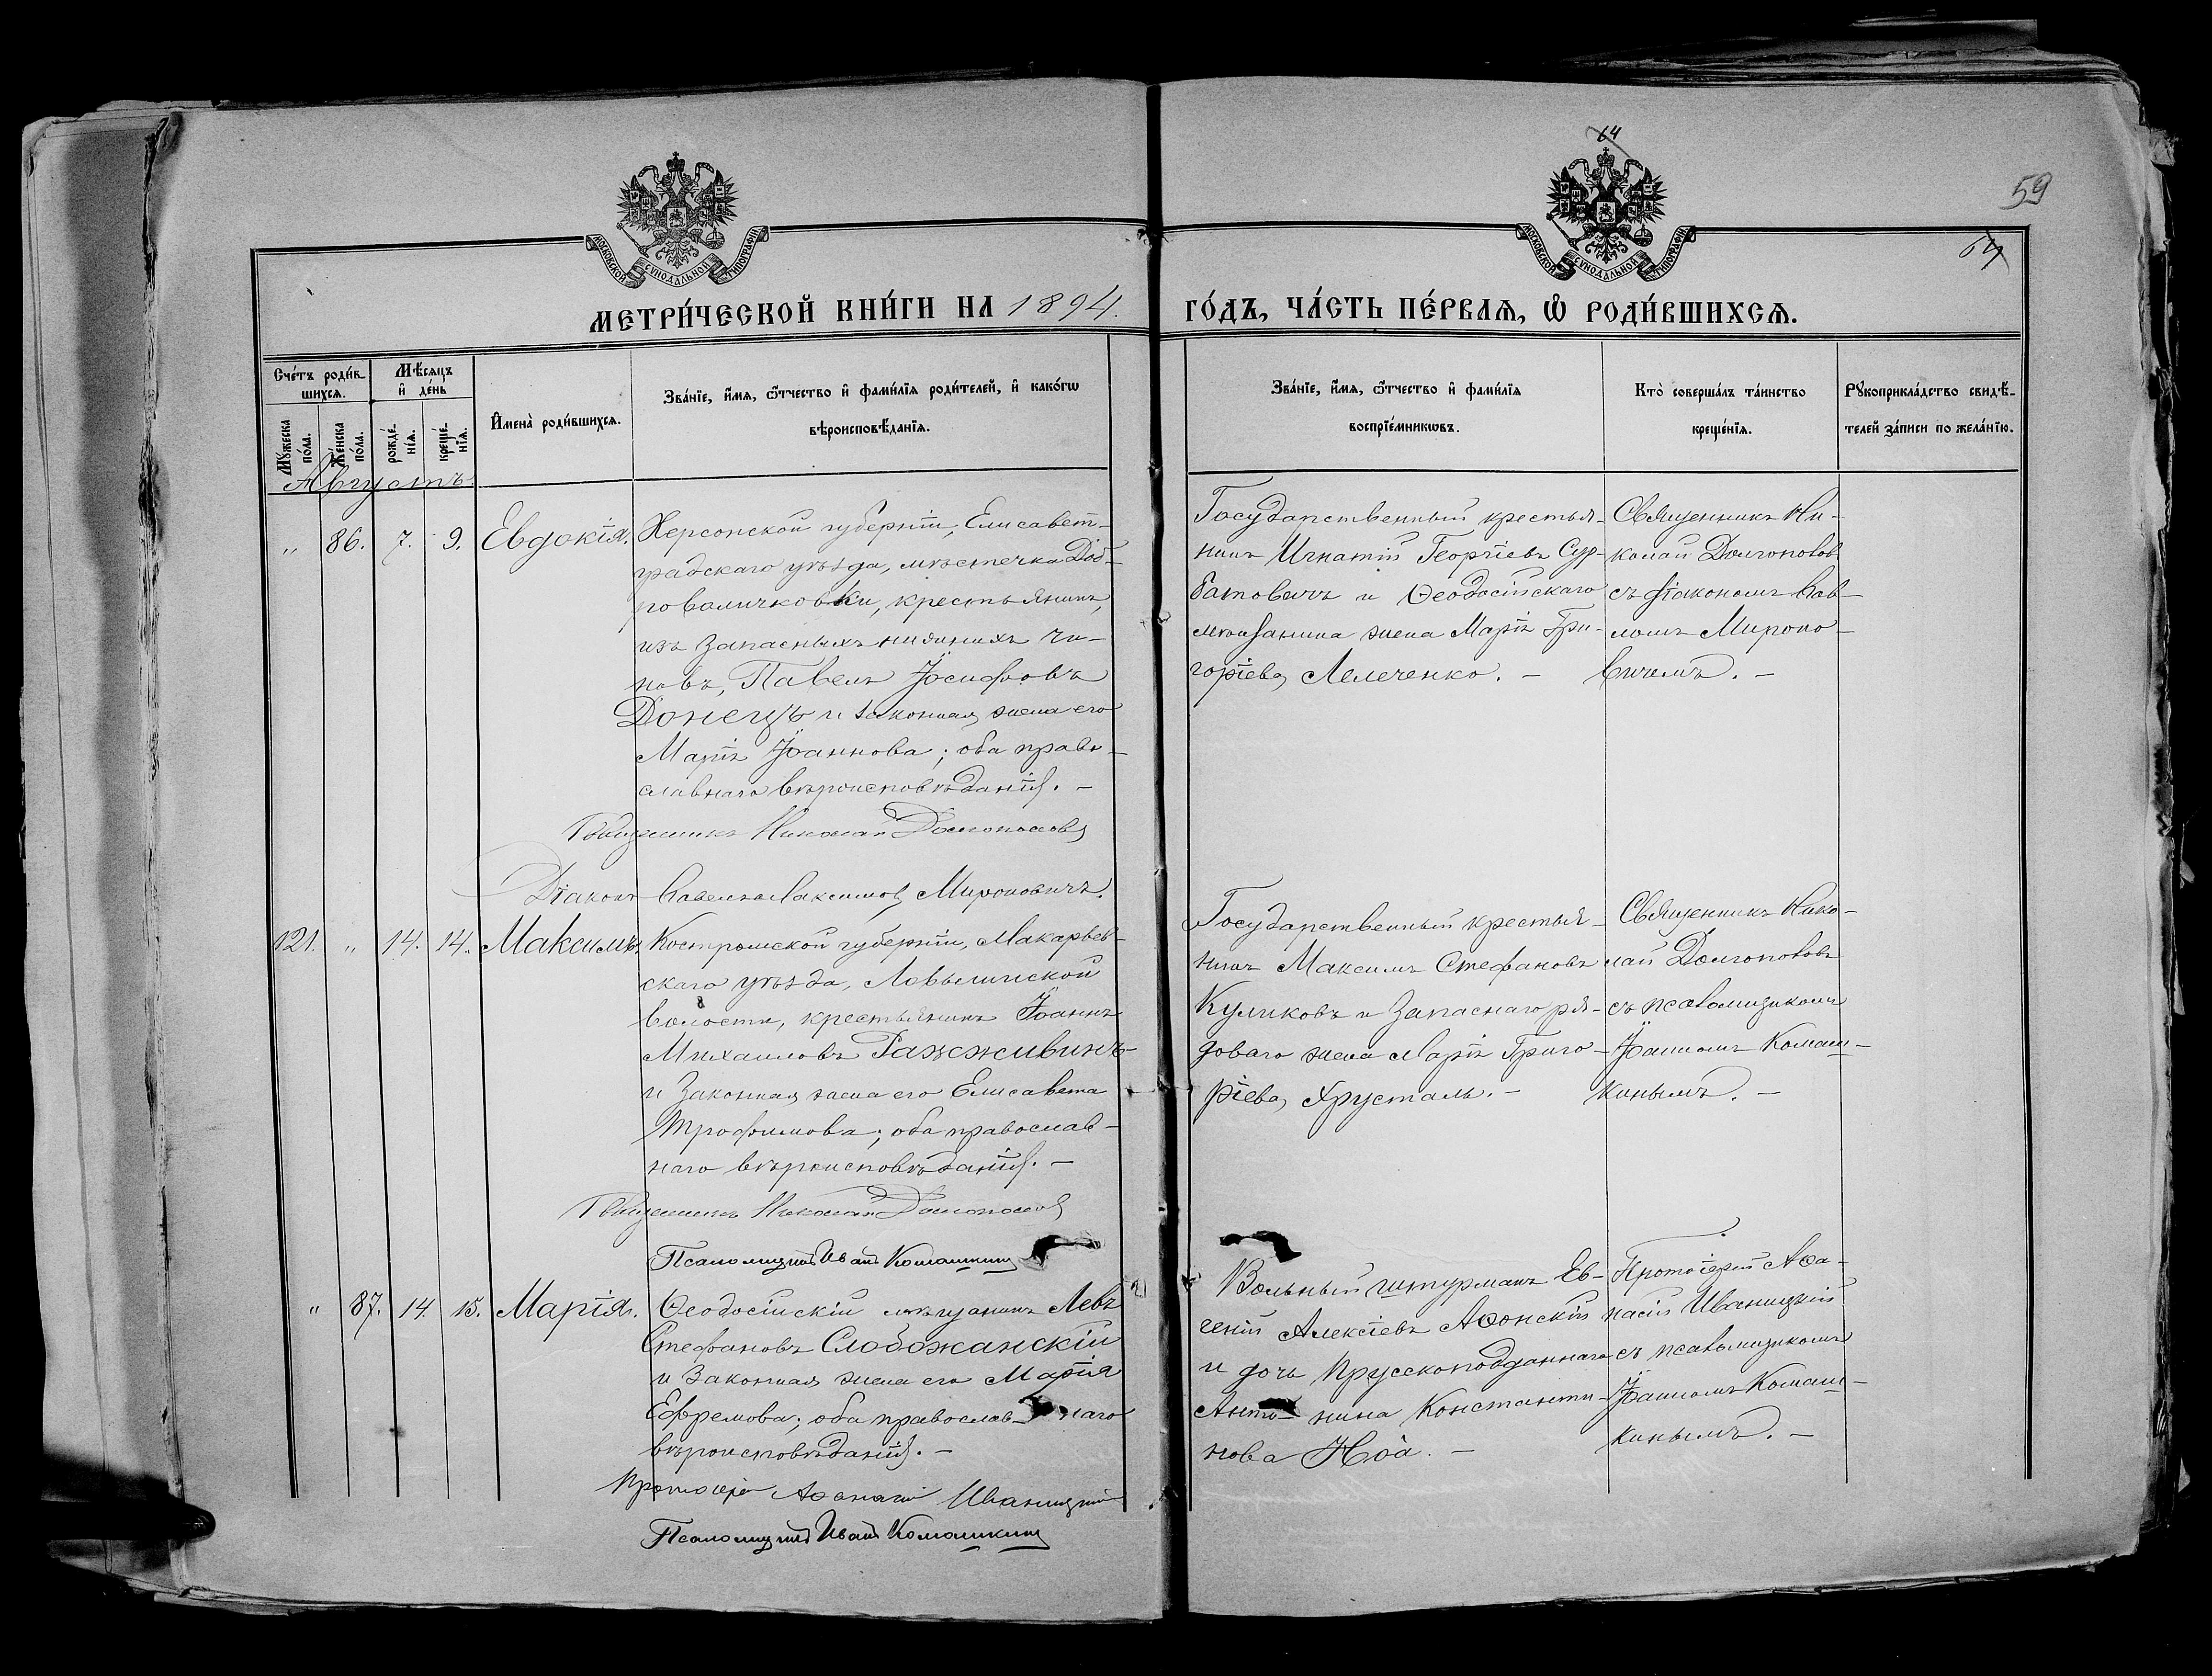 64
59
64
МОСКОВСКОЙ СѴНОДАЛЬНОЙ ТИПОГРАФІИ
МОСКОВСКОЙ СѴНОДАЛЬНОЙ ТИПОГРАФІИ
МЕТРИ́ЧЕСКОЙ КНИ́ГИ НА 1894. ГО́ДЪ, ЧА́СТЬ ПЕ́РВАѦ, Ѡ҆ РОДИ́ВШИХСѦ.
Сче́тъ роди́в-
шихсѧ.
Мꙋ́жеска
по́ла.
Же́нска
по́ла.
Мѣ́сѧцъ
и҆ де́нь
рожде́-
нїѧ.
креще́-
нїѧ.
И҆мена̀ роди́вшихсѧ.
Зва́нїе, и҆́мѧ, ѻ҆́тчество и҆ фами́лїѧ роди́телей, и҆ како́гѡ
вѣроисповѣ́данїѧ.
Зва́нїе, и҆́мѧ, ѻ҆́тчество и҆ фами́лїѧ
воспрїе́мникѡвъ.
Кто̀ соверша́лъ та́инство
креще́нїѧ.
Рꙋкоприкла́дство свидѣ́-
телей за́писи по жела́нїю.
Августъ
„ 86. 7. 9. Евдокія.
Херсонской губерніи, Елисавет-
градскаго уѣзда, мѣстечка Доб-
ровеличковки, крестьянинъ,
изъ запасныхъ нижнихъ чи-
новъ, Павелъ Іосифовъ
Донецъ и законная жена его
Марія Іоаннова; оба право-
славнаго вѣроисповѣданія. –
Священникъ Николай Долгополовъ
Діаконъ Павелъ Максимовъ Мироновичъ.
Государственный крестья-
нинъ Игнатій Георгіевъ Сур-
батовичъ и Ѳеодосійскаго
мѣщанина жена Марія Гри-
горіева Лелеченко. –
Священникъ Ни-
колай Долгополовъ
съ діакономъ Пав-
ломъ Мироно-
вичемъ. –
121. „ 14. 14. Максимъ.
Костромской губерніи, Макарьев-
скаго уѣзда,
волости, крестьянинъ Іоаннъ
Михаиловъ Разживинъ
и законная жена его Елисавета
Трофимова; оба православ-
наго вѣроисповѣданія. –
Священникъ Николай Долгополовъ
Псаломщикъ Иванъ Комашкинъ
Государственный крестья-
нинъ Максимъ Стефановъ
Куликовъ и запаснаго ря-
доваго жена Марія Григо-
ріева Хрусталь. –
Священникъ Нико-
лай Долгополовъ
съ псаломщикомъ
Іоанномъ Комаш-
кинымъ. –
„ 87. 14. 15. Марія.
Ѳеодосійскій мѣщанинъ Левъ
Стефановъ Слобожанскій
и законная жена его Марія
Ефремова; оба православ-наго
вѣроисповѣданія. –
Протоіерей Аѳанасій Иваницкій
Псаломщикъ Иванъ Комашкинъ
Вольный штурманъ Ев-
геній Алексіевъ Аѳонскій
и дочь Прусскоподданнаго
Анто-нина Константи-
нова Ноа. –
Протоіерей Аѳа-
насій Иваницкій
съ псаломщикомъ
Іоанномъ Комаш-
кинымъ. –